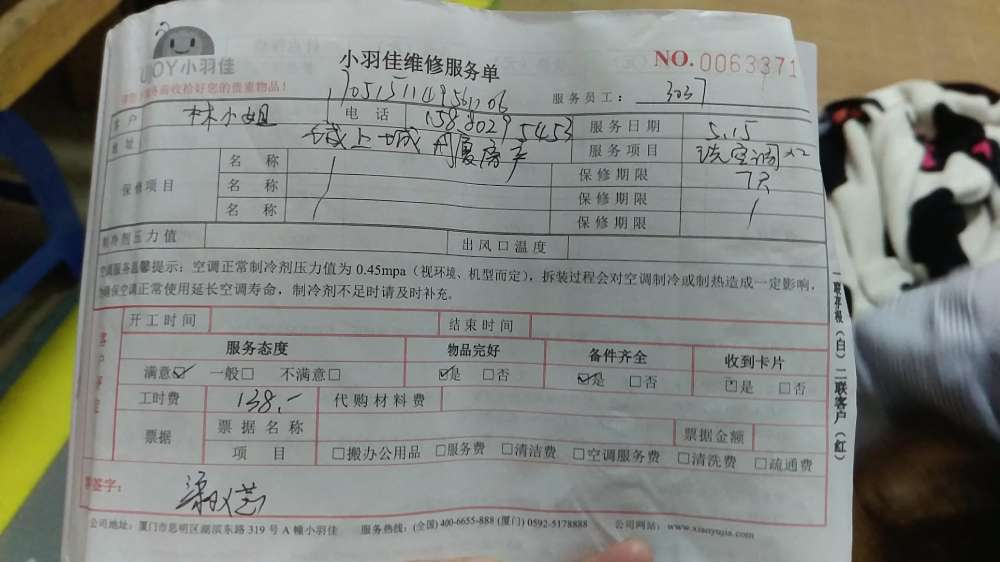 UJOY小羽佳
小羽佳维修服务单
NO.0063371
收拾好您的贵重物品！
服务员工： 3037
客户 林小姐 电话 158 8029 5453 服务日期 5.15
地址 城上城 服务项目 洗空调x2
保修项目 名称 保修期限 7天
名称 保修期限
名称 保修期限
制冷剂压力值 出风口温度
空调服务温馨提示：空调正常制冷剂压力值为 0.45mpa（视环境、机型而定），拆装过程会对空调制冷或制热造成一定影响，
确保空调正常使用延长空调寿命，制冷剂不足时请及时补充。
开工时间 结束时间
服务态度 物品完好 备件齐全 收到卡片
满意☑ 一般□ 不满意□ ☑是 □否 ☑是 □否 □是 □否
工时费 138.- 代购材料费
票据 票据名称 票据金额
项目 □搬办公用品 □服务费 □清洁费 □空调服务费 □清洗费 □疏通费
签字：
公司地址：厦门市思明区湖滨东路 319 号 A 幢小羽佳 服务热线：(全国) 400-6655-888 (厦门) 0592-5178888 公司网站：www.xiaoyujia.com
一联存根（白）二联客户（红）